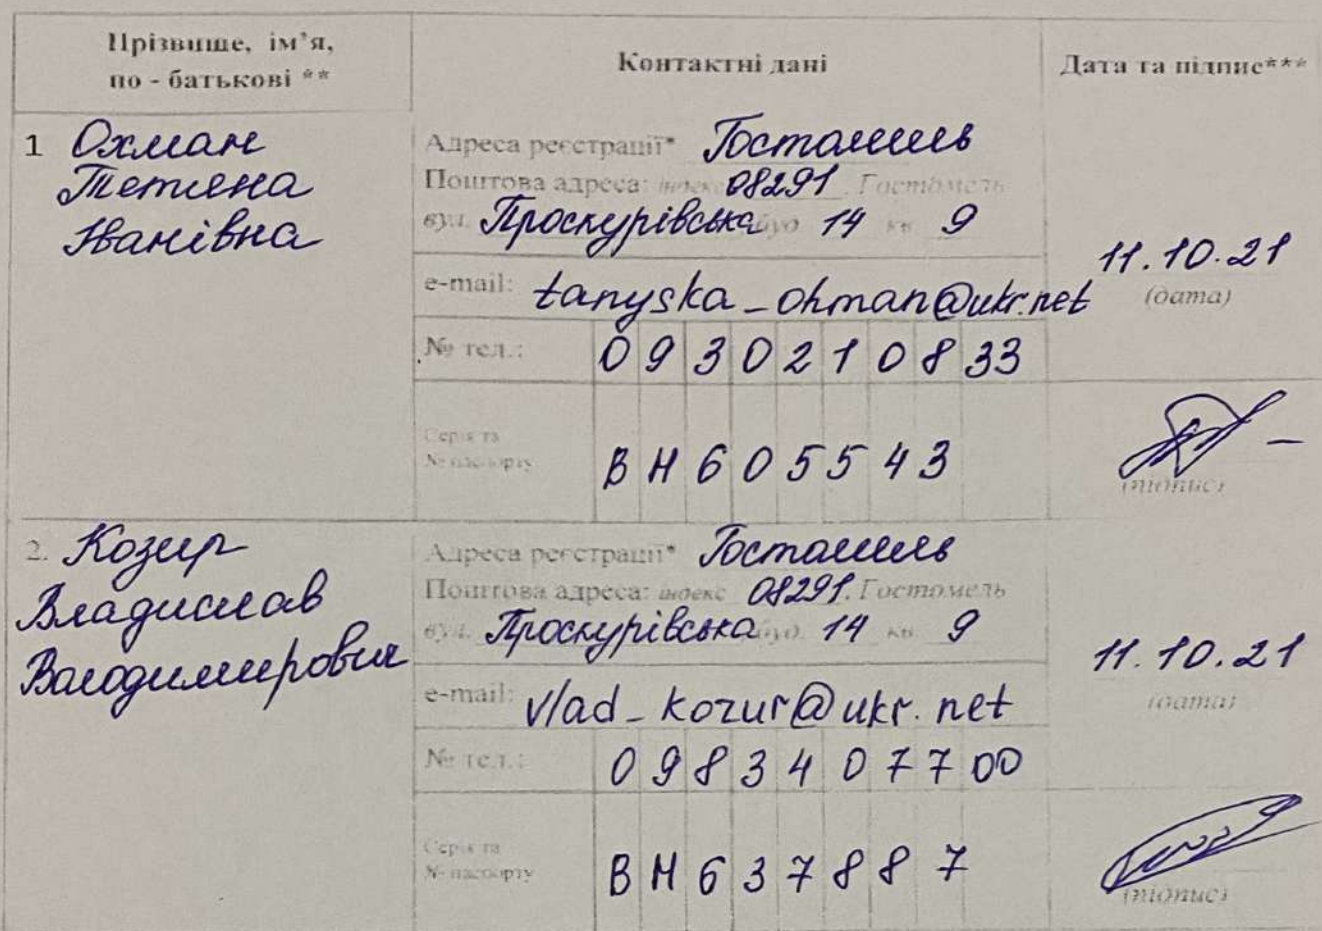 Прізвище, ім’я,
по - батькові **
Контактні дані
Дата та підпис***
1 Охман
Тетяна
Іванівна
Адреса реєстрації* Гостомель
Поштова адреса: індекс 08291. Гостомель
вул. Проскурівська буд. 14 кв 9
e-mail: tanyska_ohman@ukr.net
№ тел.: 0930210833
Серія та
№ паспорту
ВН605543
11.10.21
(дата)
(підпис)
2. Козир
Владислав
Володимирович
Адреса реєстрації* Гостомель
Поштова адреса: індекс 08291. Гостомель
вул. Проскурівська буд. 14 кв 9
e-mail: vlad_kozur@ukr.net
№ тел.: 0983407700
Серія та
№ паспорту
ВН637887
11.10.21
(дата)
(підпис)